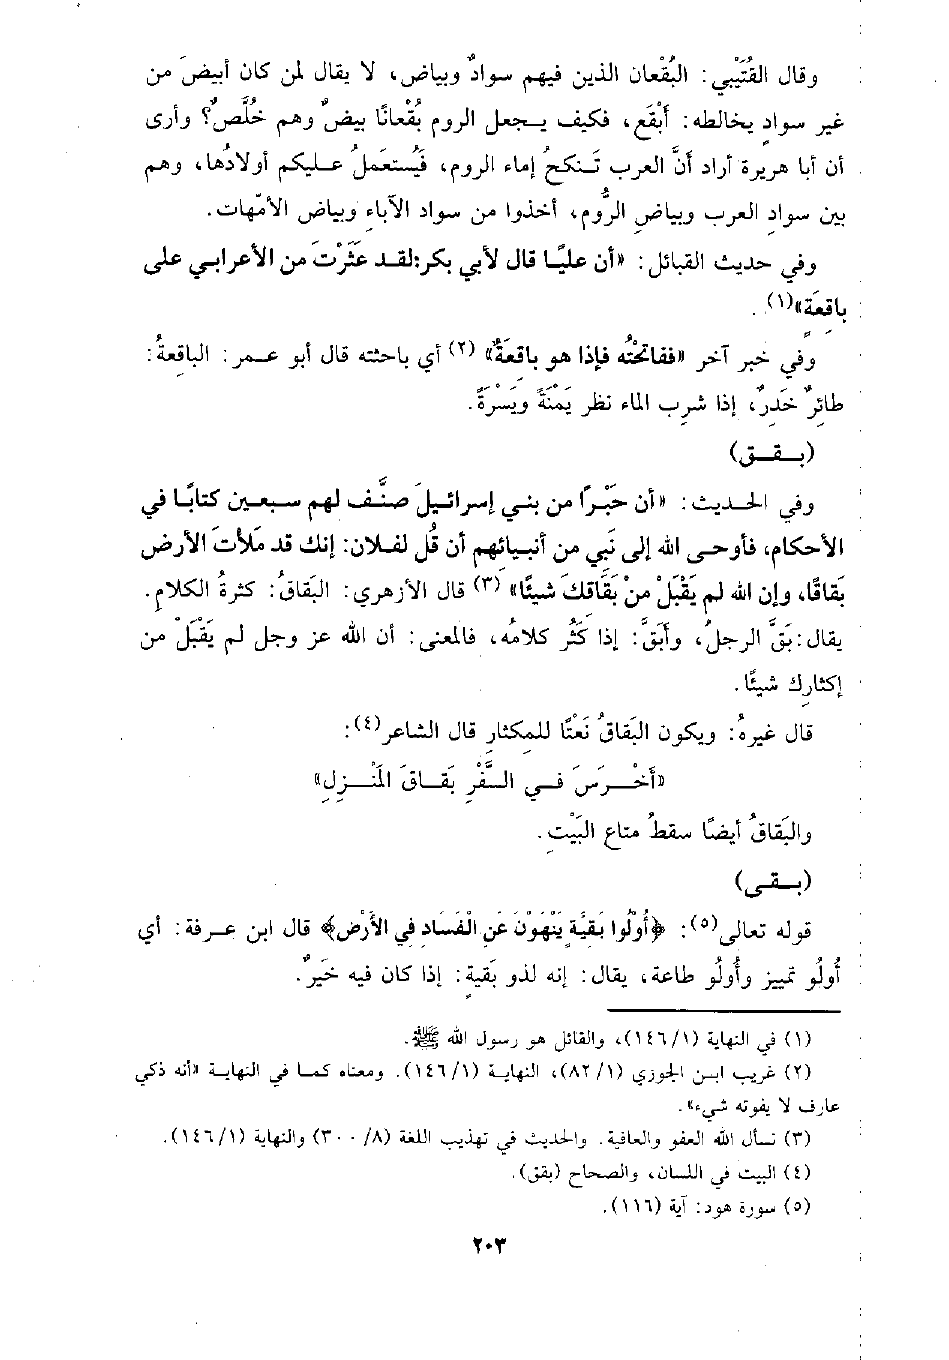 وقال القُتَيْبي: البُقْعان الذين فيهم سوادٌ وبياض، لا يقال لمن كان أبيضَ من
غير سوادٍ يخالطه: أَبْقَع، فكيف يجعل الروم بُقْعانًا بيضٌ وهم خُلَّصٌ؟ وأرى
أن أبا هريرة أراد أنَّ العرب تَنكحُ إماء الروم، فَيُستَعمَلُ عليكم أولادُها، وهم
بين سوادِ العرب وبياضِ الرُّوم، أخذوا من سواد الآباءِ وبياضِ الأمّهات.
وفي حديث القبائل: «أن عليًا قال لأبي بكر:لقد عَثَرْتَ من الأعرابي على
باقِعَةٍ»(١).
وفي خبر آخر «ففاتحْتُه فإذا هو باقِعَةٌ» (٢) أي باحثته قال أبو عمر: الباقعةُ:
طائِرٌ حَذِرٌ، إذا شرِب الماء نظر يَمْنَةً ويَسْرَةً.
(بـقـق)
وفي الحديث: «أن حَبْرًا من بني إسرائيلَ صنَّف لهم سبعين كتابًا في
الأحكام، فأوحى الله إلى نَبِي من أنبيائهم أن قُل لفلان: إنك قد مَلأتَ الأرض
بَقاقًا، وإن الله لم يَقْبَلْ منْ بَقَاقكَ شيئًا» (٣) قال الأزهري: البَقاقُ: كثرةُ الكلامِ.
يقال:بَقَّ الرجلُ، وأَبَقَّ: إذا كَثُر كلامُه، فالمعنى: أن الله عز وجل لم يَقْبَلْ من
إكثارِك شيئًا.
قال غيرهُ: ويكون البَقاقُ نَعْتًا للمِكثارِ قال الشاعر(٤):
«أَخْـرَسَ فـي السَّفْرِ بَقـاقَ المَنْـزِلِ»
والبَقاقُ أيضًا سقطُ متاع البَيْتِ.
(بـقى)
قوله تعالى(٥): ﴿أُوْلُوا بَقيَّةٍ يَنْهَوْنَ عَنِ الْفَسَادِ في الأَرْضِ﴾ قال ابن عرفة: أي
أُولُو تمييز وأُولُو طاعة، يقال: إنه لذو بَقيةٍ: إذا كان فيه خَيرٌ.
(١) في النهاية (١٤٦/١)، والقائل هو رسول الله ﷺ.
(٢) غريب ابن الجوزي (٨٢/١)، النهاية (١٤٦/١). ومعناه كما في النهاية «أنه ذكي
عارف لا يفوته شيء».
(٣) نسأل الله العفو والعافية. والحديث في تهذيب اللغة (٣٠٠/٨) والنهاية (١٤٦/١).
(٤) البيت في اللسان، والصحاح (بقق).
(٥) سورة هود: آية (١١٦).
٢٠٣